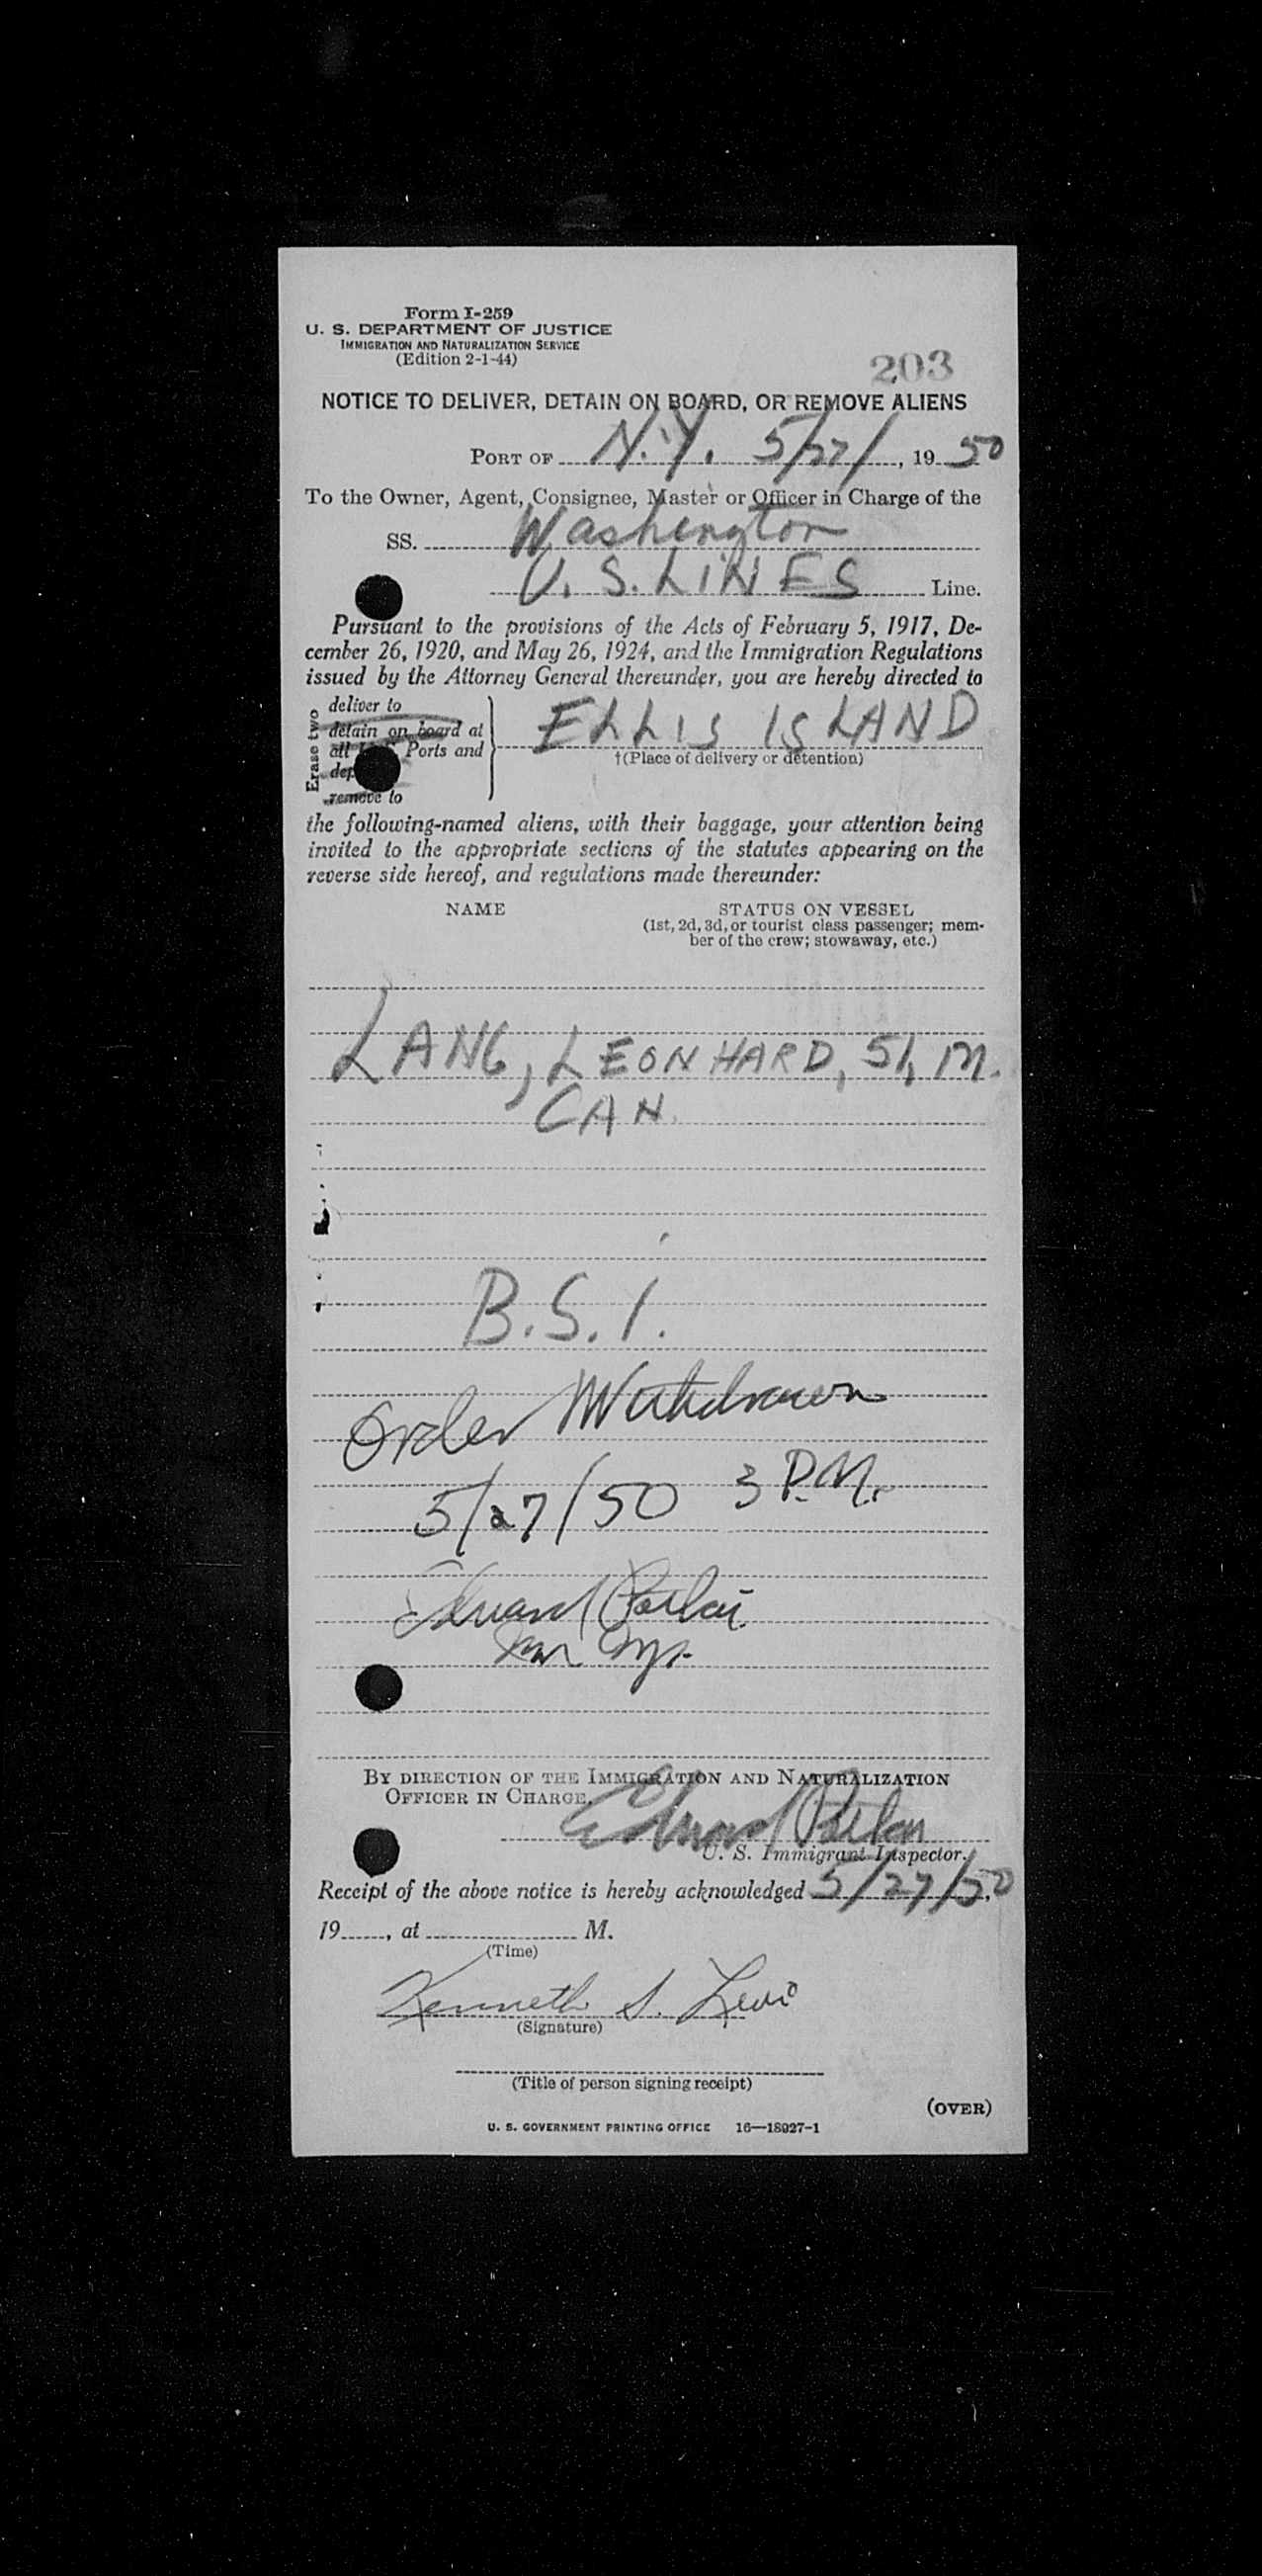 Form I-259
U. S. DEPARTMENT OF JUSTICE
IMMIGRATION AND NATURALIZATION SERVICE
(Edition 2-1-44)
203
NOTICE TO DELIVER, DETAIN ON BOARD, OR REMOVE ALIENS
PORT OF N.Y. 5/27/, 19 50
To the Owner, Agent, Consignee, Master or Officer in Charge of the
SS. Washington
U. S. LINES Line.
Pursuant to the provisions of the Acts of February 5, 1917, De-
cember 26, 1920, and May 26, 1924, and the Immigration Regulations
issued by the Attorney General thereunder, you are hereby directed to
Erase two
deliver to
detain on board at
all Ports and
remove to
ELLIS ISLAND
†(Place of delivery or detention)
the following-named aliens, with their baggage, your attention being
invited to the appropriate sections of the statutes appearing on the
reverse side hereof, and regulations made thereunder:
NAME
STATUS ON VESSEL
(1st, 2d, 3d, or tourist class passenger; mem-
ber of the crew; stowaway, etc.)
LANG, LEONHARD, 51, M.
CAN.
B.S.I.
Order Withdrawn
5/27/50 3 P.M.
Edward
BY DIRECTION OF THE IMMIGRATION AND NATURALIZATION
OFFICER IN CHARGE.
Edward
U. S. Immigrant Inspector.
Receipt of the above notice is hereby acknowledged 5/27/50,
19......, at .................... M.
(Time)
Kenneth S. Levi
(Signature)
(Title of person signing receipt)
(OVER)
U. S. GOVERNMENT PRINTING OFFICE 16—18927-1